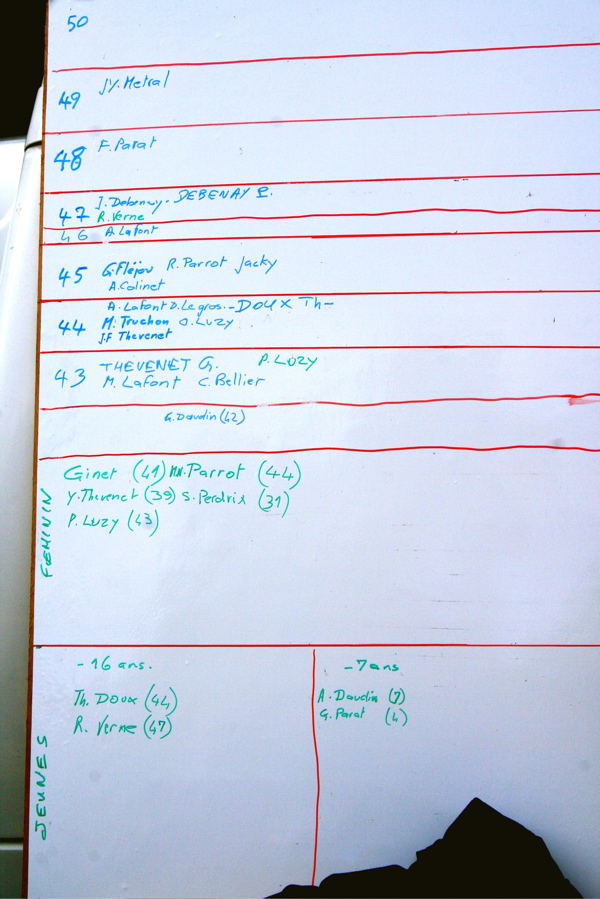 50
49 JY. Metral
48 F. Parat
47 J. Debenay - DEBENAY P.
R. Verne
46 A. Lafont
45 G. Fléjou R. Parrot Jacky
A. Colinet
A. Lafont D. Legros - DOUX Th-
44 M. Truchon O. Luzy
J.F Thevenet
THEVENET G. P. LUZY
43 M. Lafont C. Bellier
G. Daudin (42)
FEMININ
Ginet (41) MN. Parrot (44)
Y. Thevenet (39) S. Perdrix (31)
P. Luzy (43)
JEUNES
- 16 ans.
Th. Doux (44)
R. Verne (47)
- 7 ans
A. Daudin (7)
G. Parat (4)